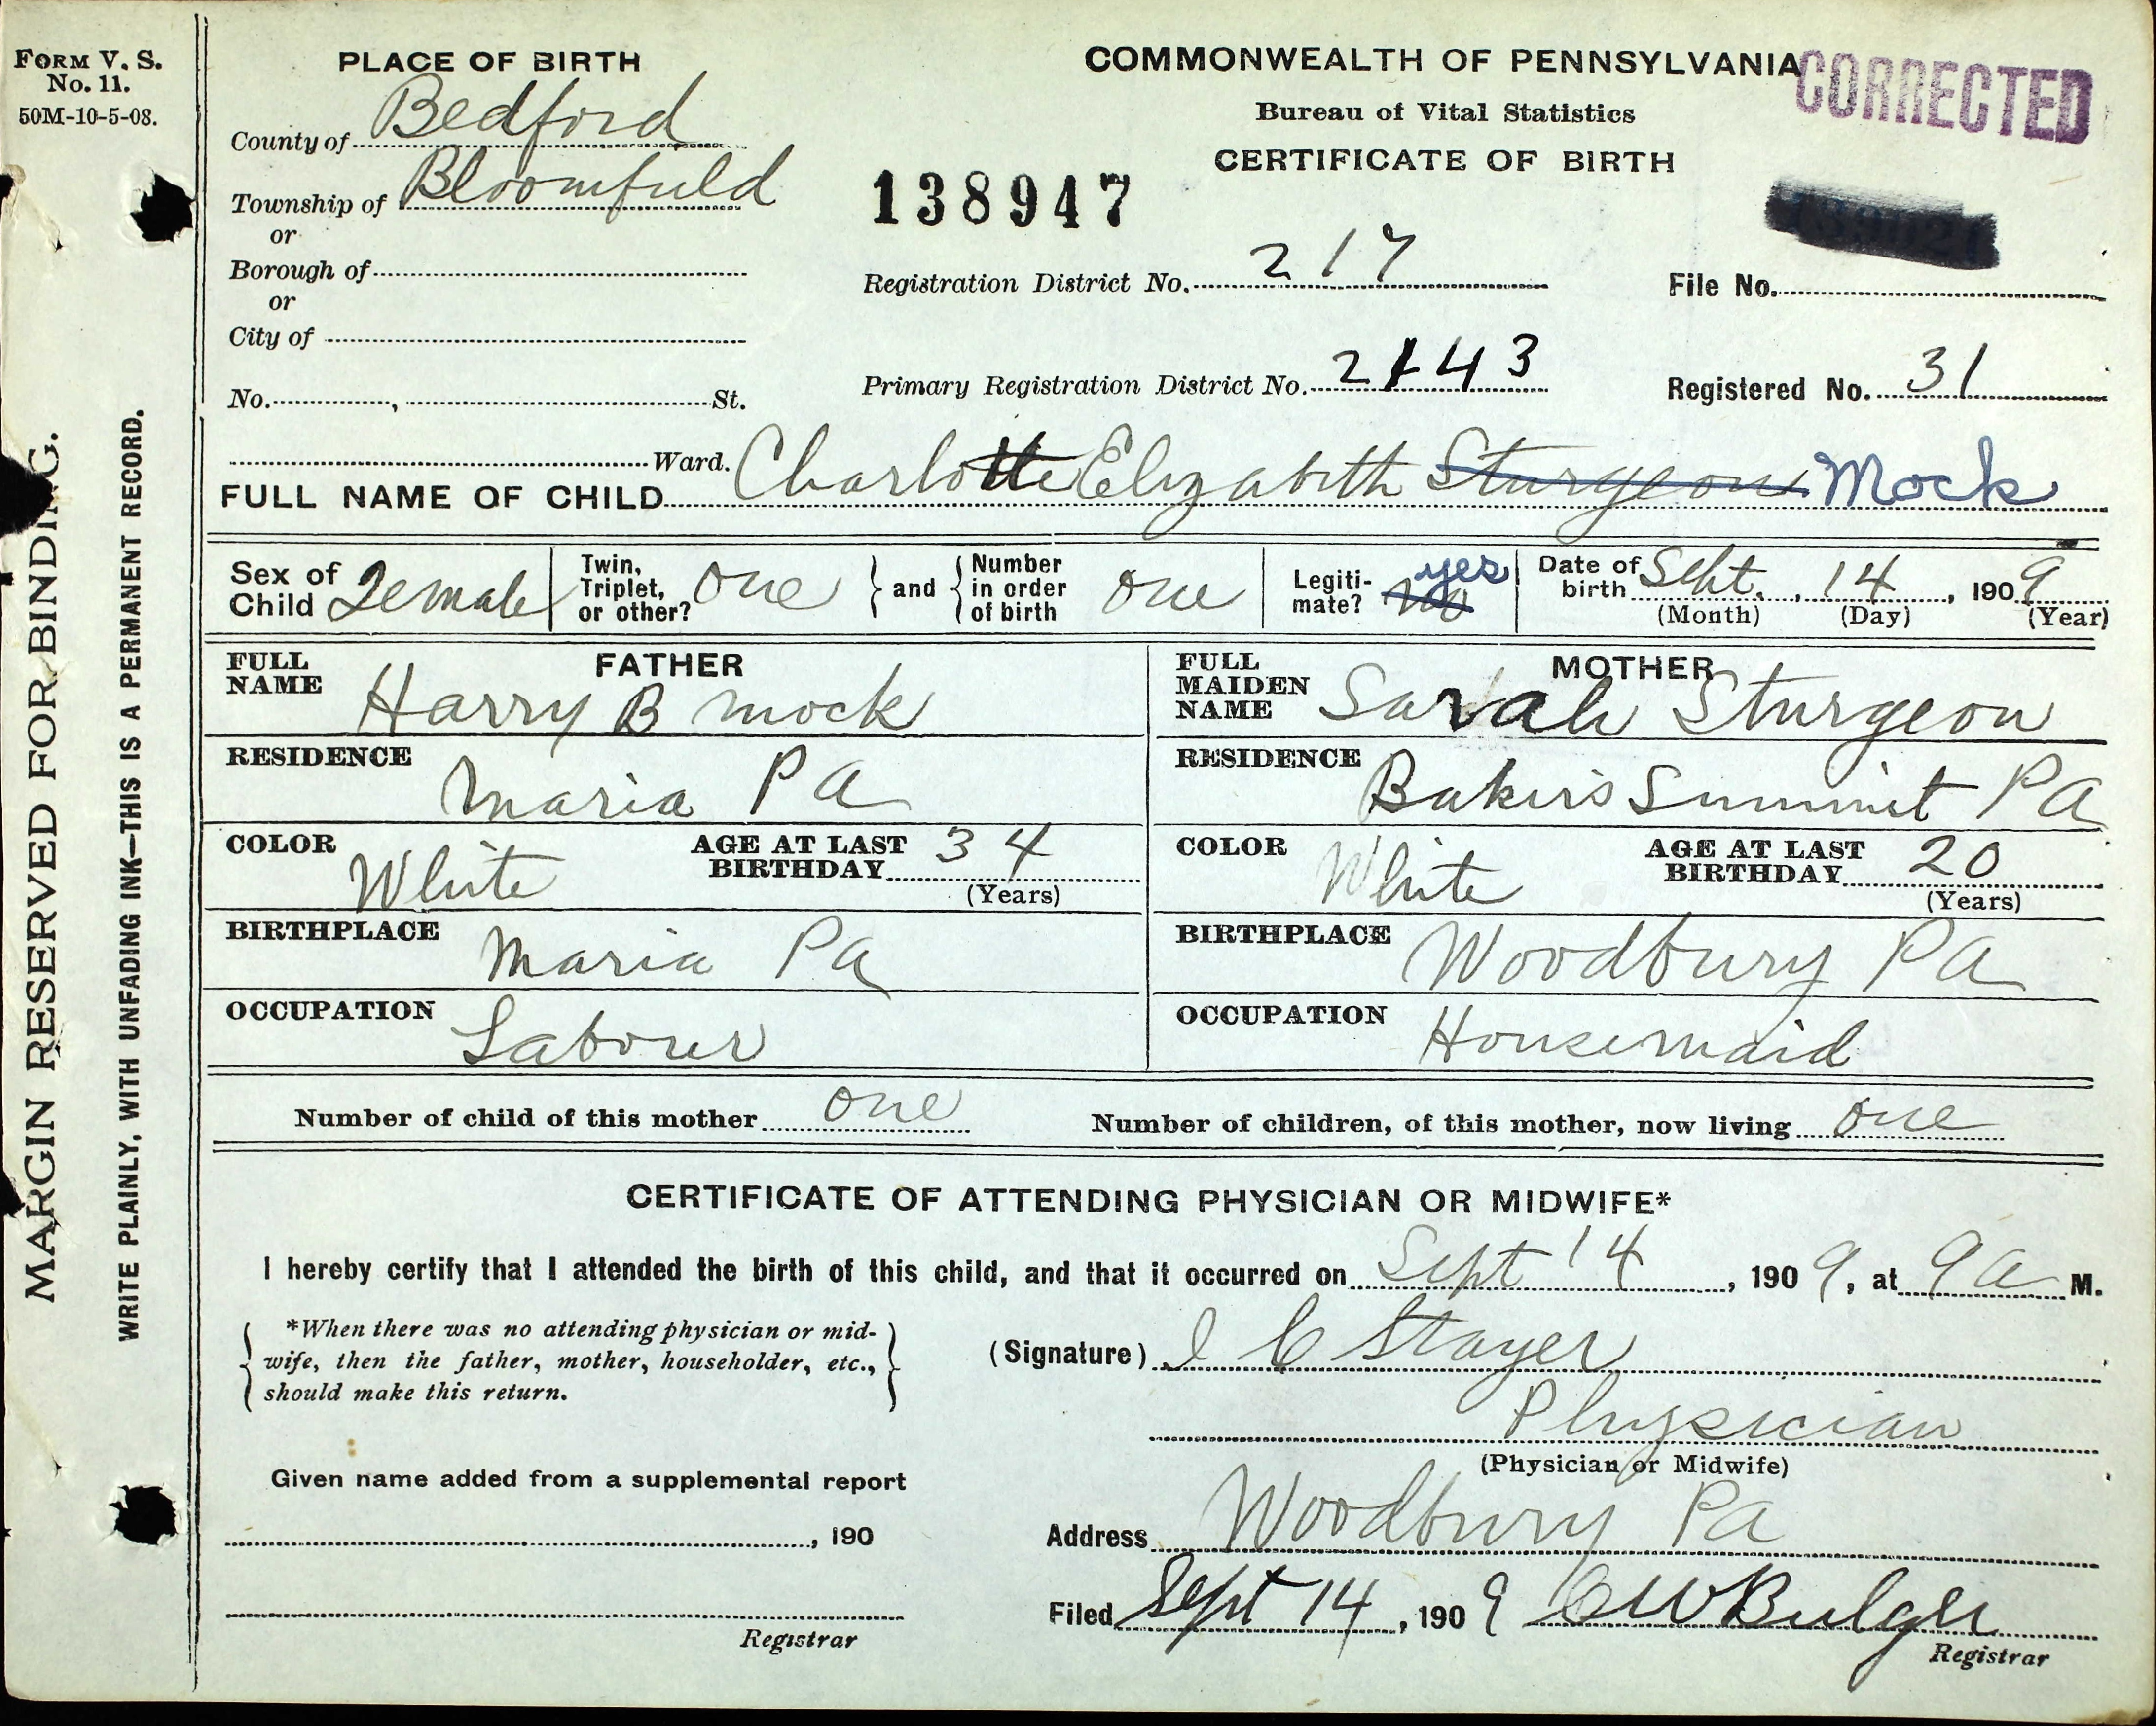 FORM V. S.
No. 11.
50M-10-5-08.
MARGIN RESERVED FOR BINDING.
WRITE PLAINLY, WITH UNFADING INK—THIS IS A PERMANENT RECORD.
PLACE OF BIRTH
County of Bedford
Township of Bloomfield
or
Borough of
or
City of
No. , St.
Ward.
COMMONWEALTH OF PENNSYLVANIA
CORRECTED
Bureau of Vital Statistics
CERTIFICATE OF BIRTH
138947
Registration District No. 217
File No.
Primary Registration District No. 2143
Registered No. 31
FULL NAME OF CHILD Charlotte Elizabeth Sturgeon Mock
Sex of Child Female
Twin, Triplet, or other? One
and
Number in order of birth One
Legiti-mate? No yes
Date of birth Sept. , 14 , 1909
(Month) (Day) (Year)
FATHER
FULL NAME Harry B Mock
RESIDENCE Maria Pa
COLOR White
AGE AT LAST BIRTHDAY 34
(Years)
BIRTHPLACE Maria Pa
OCCUPATION Labour
MOTHER
FULL MAIDEN NAME Sarah Sturgeon
RESIDENCE Bakers Summit Pa
COLOR White
AGE AT LAST BIRTHDAY 20
(Years)
BIRTHPLACE Woodbury Pa
OCCUPATION Housemaid
Number of child of this mother One
Number of children, of this mother, now living One
CERTIFICATE OF ATTENDING PHYSICIAN OR MIDWIFE*
I hereby certify that I attended the birth of this child, and that it occurred on Sept 14 , 1909, at 9 a M.
*When there was no attending physician or mid-
wife, then the father, mother, householder, etc.,
should make this return.
(Signature) I C Stayer
Physician
(Physician or Midwife)
Given name added from a supplemental report
, 190
Registrar
Address Woodbury Pa
Filed Sept 14 , 1909 C W Bulger
Registrar